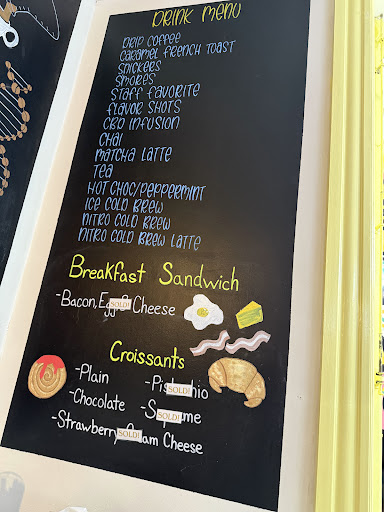 DRINK MENU
DRIP COFFEE
CARAMEL FRENCH TOAST
SNICKERS
SMORES
STAFF FAVORITE
FLAVOR SHOTS
CBD INFUSION
CHAI
MATCHA LATTE
TEA
HOT CHOC/PEPPERMINT
ICE COLD BREW
NITRO COLD BREW
NITRO COLD BREW LATTE
Breakfast Sandwich
-Bacon, Egg & Cheese
SOLD!
Croissants
-Plain
-Pistachio
SOLD!
-Chocolate
SOLD!
-Strawberry Cream Cheese
SOLD!